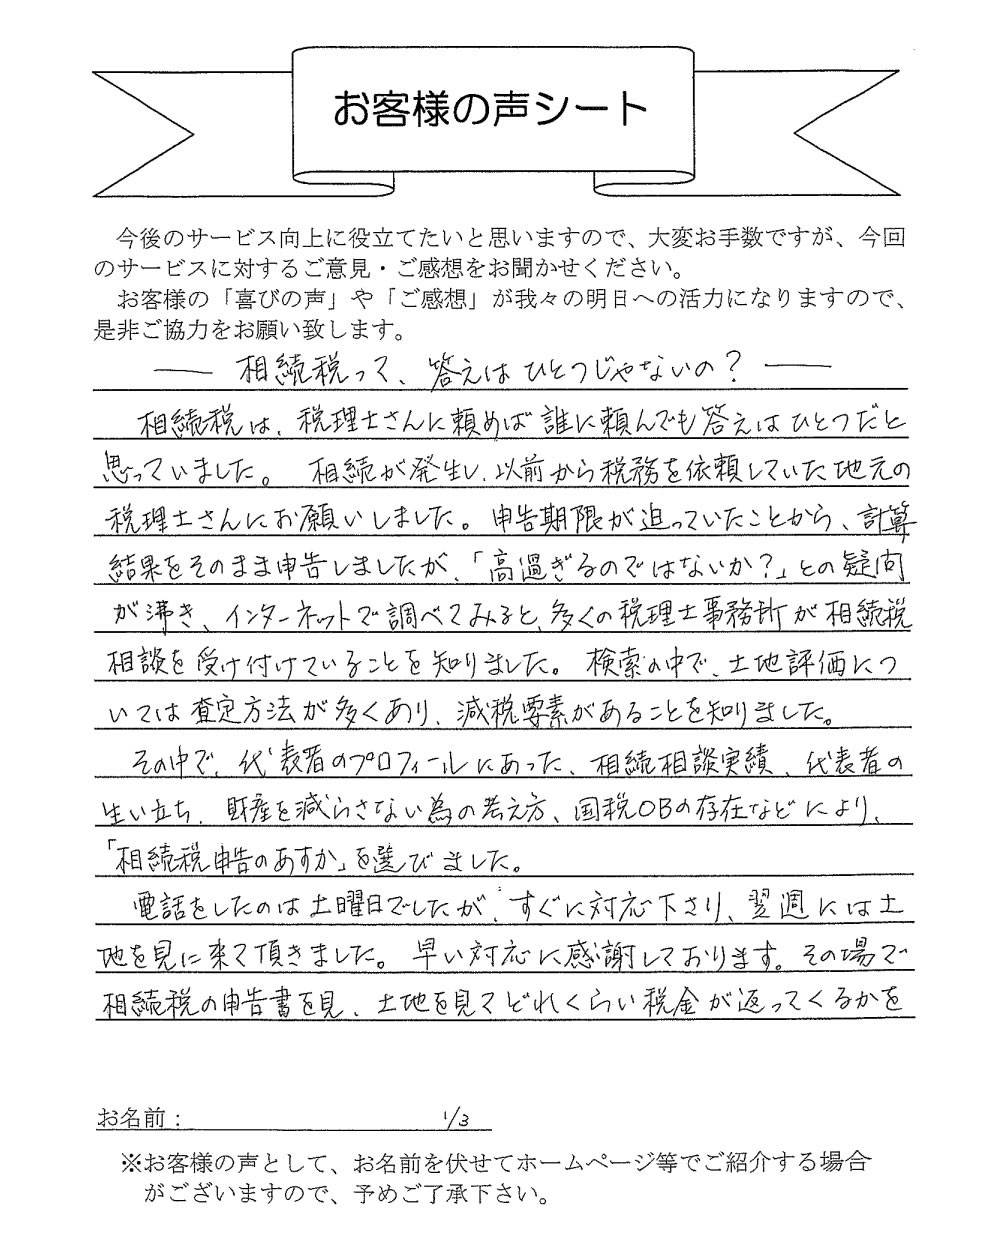 お客様の声シート
今後のサービス向上に役立てたいと思いますので、大変お手数ですが、今回
のサービスに対するご意見・ご感想をお聞かせください。
お客様の「喜びの声」や「ご感想」が我々の明日への活力になりますので、
是非ご協力をお願い致します。
― 相続税って、答えはひとつじゃないの？ ―
相続税は、税理士さんに頼めば誰に頼んでも答えはひとつだと
思っていました。 相続が発生し、以前から税務を依頼していた地元の
税理士さんにお願いしました。申告期限が迫っていたことから、計算
結果をそのまま申告しましたが、「高過ぎるのではないか？」との疑問
が沸き、インターネットで調べてみると、多くの税理士事務所が相続税
相談を受け付けていることを知りました。検索の中で、土地評価につ
いては査定方法が多くあり、減税要素があることを知りました。
その中で、代表者のプロフィールにあった、相続相談実績、代表者の
生い立ち、財産を減らさない為の考え方、国税OBの存在などにより、
「相続税申告のあすか」を選びました。
電話をしたのは土曜日でしたが、すぐに対応下さり、翌週には土
地を見に来て頂きました。早い対応に感謝しております。その場で
相続税の申告書を見、土地を見てどれくらい税金が返ってくるかを
お名前： 1/3
※お客様の声として、お名前を伏せてホームページ等でご紹介する場合
がございますので、予めご了承下さい。